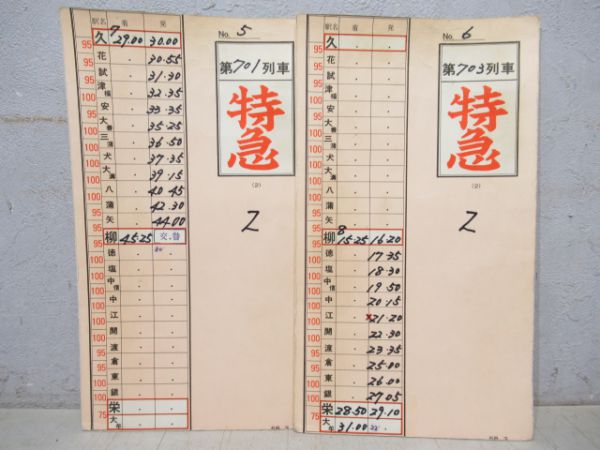 駅名 着 発
久 7 29.00 30.00
95 花 . 30.55
95 試 . 31.30
95 津福 . 32.35
100 安 . 33.35
100 大善 . 35.25
100 三潴 . 36.50
100 犬 . 37.35
100 大溝 . 39.15
100 八 . 40.45
100 蒲 . 42.30
100 矢 . 44.00
95 柳 45.25 交.替
95 徳 . .
100 塩 . .
100 中島 . .
100 中 . .
100 江 . .
100 開 . .
100 渡 . .
100 倉 . .
100 東 . .
100 銀 . .
100 栄 . .
75 大牟 . .
No. 5
第701列車
特急
(2)
Z
駅名 着 発
久 . .
95 花 . .
95 試 . .
95 津福 . .
100 安 . .
100 大善 . .
100 三潴 . .
100 犬 . .
100 大溝 . .
100 八 . .
100 蒲 . .
100 矢 . .
95 柳 8 15.25 16.20
95 徳 . 17.35
100 塩 . 18.30
100 . 19.50
100 中 . 20.15
100 江 . 21.20
100 開 . 22.30
100 渡 . 23.35
100 倉 . 25.00
100 東 . 26.00
100 銀 . 27.05
100 栄 28.50 29.10
75 大牟 31.00
No. 6
第703列車
特急
(2)
Z